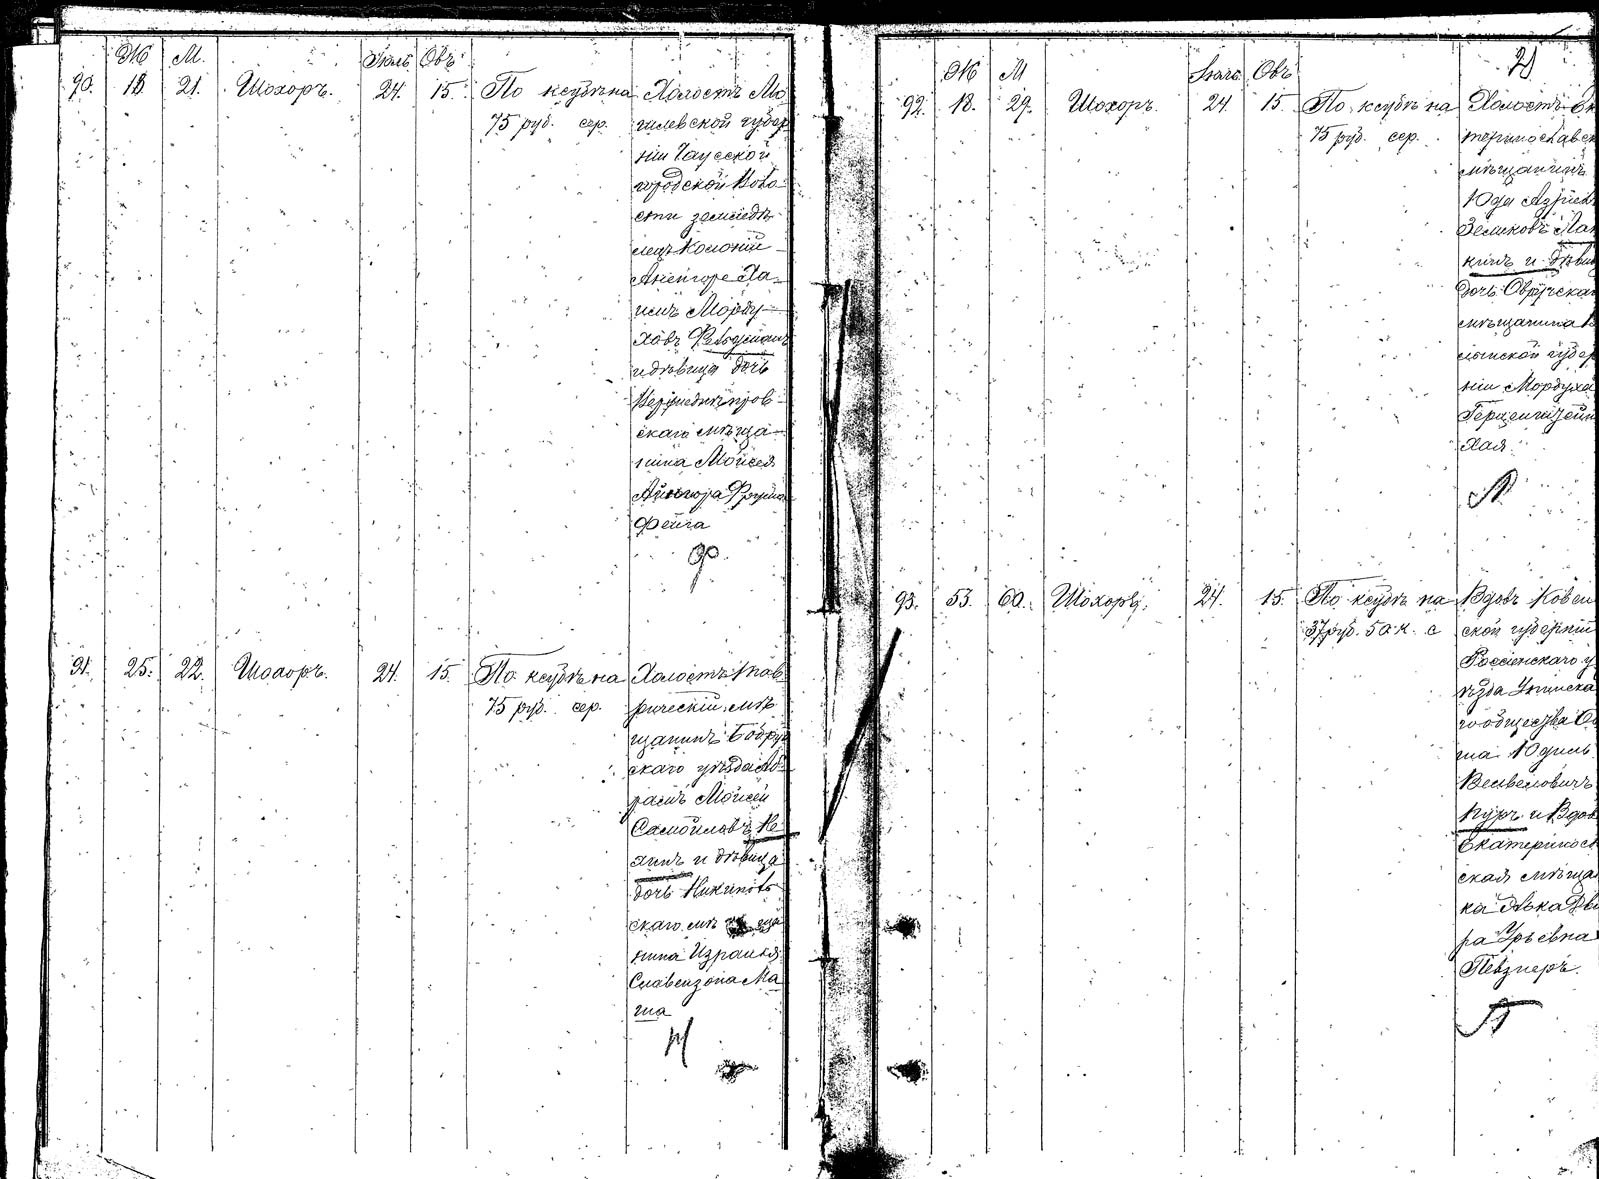 Ж М. Іюль Овъ
90. 18 21. Шохоръ. 24. 15. По ксубѣ на
75 руб. сер.
Холостъ Мо
гилевской губер
ніи Чаусской
городской Воло
сти земледѣ
лецъ Колоніи
Хаимъ Морду
ховъ Фельдманъ
и дѣвица дочь
Верхнеднѣпров
скаго мѣща
нина Моисея
Фрума
Фейга
Ф
91. 25. 22. Шохоръ. 24. 15. По ксубѣ на
75 руб. сер.
Холостъ Тав
рическій мѣ
щанинъ
скаго уѣзда Аб
рамъ Моисей
Самойловъ Не
хинъ и дѣвица
дочь Никополь
скаго мѣща
нина Израиля
Ма
ша
Н
21
Ж М Іюль Овъ
92. 18. 29. Шохоръ. 24. 15. По ксубѣ на
75 руб. сер.
Холостъ Ека
теринославск
мѣщанинъ
Юда Азріел
Зеликовъ Лап
кинъ и дѣвиц
дочь Овручскаг
мѣщанина Во
лынской губер
ніи Мордуха
Хая
Л
93. 53. 60. Шохоръ. 24. 15. По ксубѣ на
37 руб. 50 к. с
Вдовъ Ковен
ской губерніи
Россіенскаго у
ѣзда
го общества
Юдиль
Вельвеловичъ
Куръ и Вдов
Екатеринос
ская мѣщан
ка Элька Дво
ра Урьевна
Певзнеръ.
П